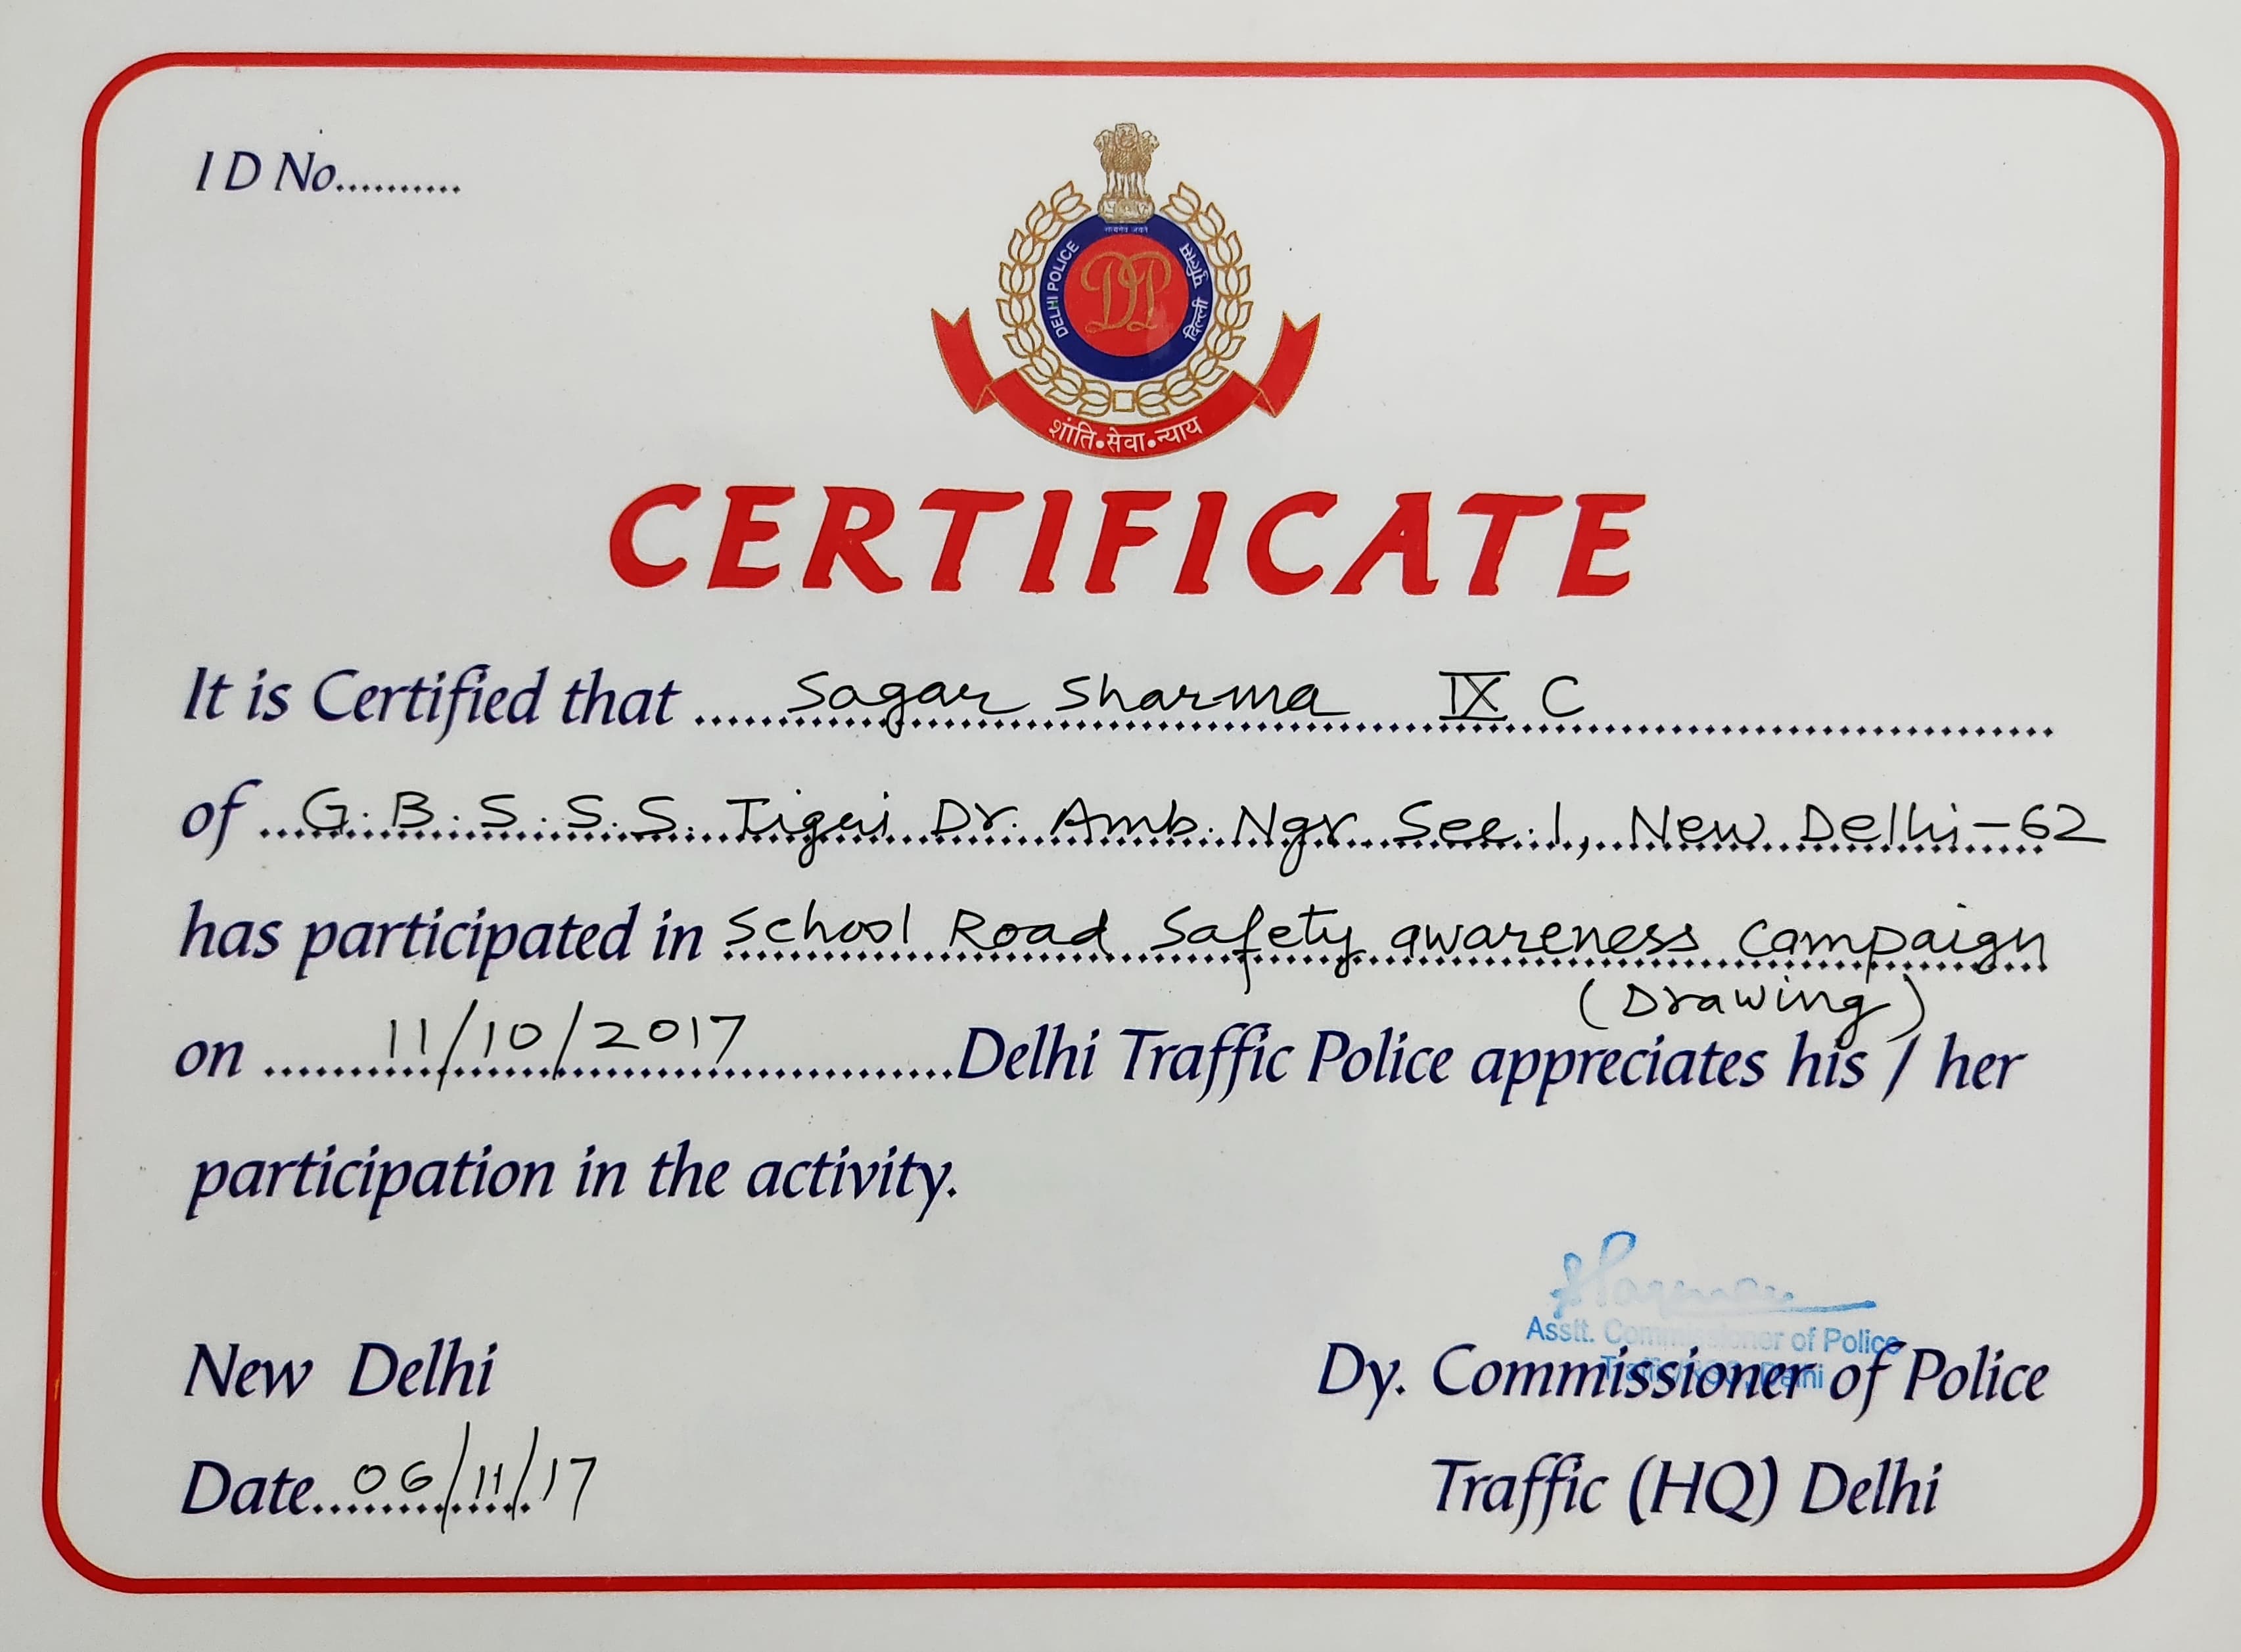 I D No..........
सत्यमेव जयते
DELHI POLICE
दिल्ली पुलिस
DP
शांति•सेवा•न्याय
CERTIFICATE
It is Certified that Sagar Sharma IX C
of G.B.S.S.S. Tigri Dr. Amb. Ngr Sec. 1, New Delhi-62
has participated in School Road Safety awareness campaign
(Drawing)
on 11/10/2017 Delhi Traffic Police appreciates his / her
participation in the activity.
Asstt. Commissioner of Police
New Delhi
Dy. Commissioner of Police
Date 06/11/17
Traffic (HQ) Delhi